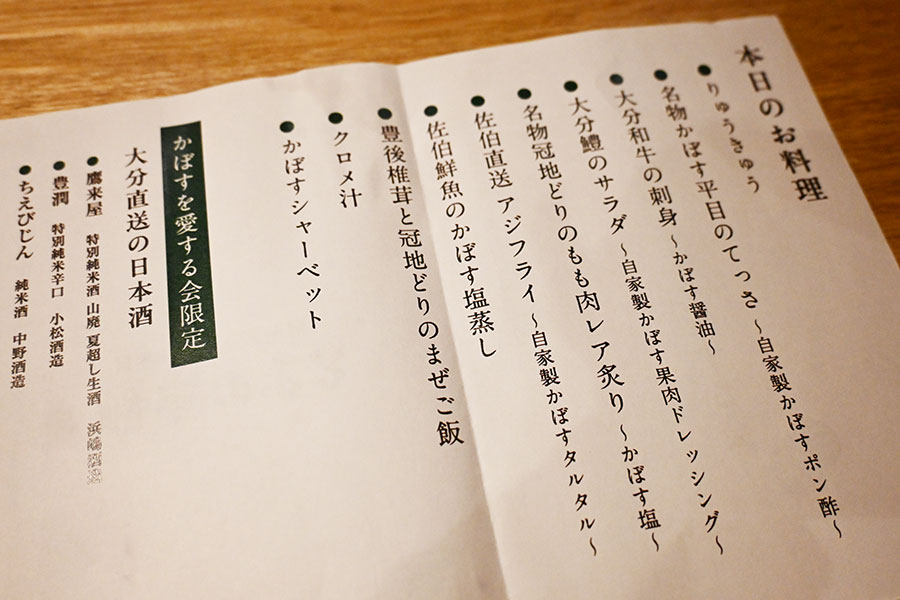 本日のお料理
● りゅうきゅう
● 名物かぼす平目のてっさ ～自家製かぼすポン酢～
● 大分和牛の刺身 ～かぼす醤油～
● 大分鱧のサラダ ～自家製かぼす果肉ドレッシング～
● 名物冠地どりのもも肉レア炙り ～かぼす塩～
● 佐伯直送 アジフライ ～自家製かぼすタルタル～
● 佐伯鮮魚のかぼす塩蒸し
● 豊後椎茸と冠地どりのまぜご飯
● クロメ汁
● かぼすシャーベット
かぼすを愛する会限定
大分直送の日本酒
● 鷹来屋 特別純米酒 山廃 夏超し生酒 浜嶋酒造
● 豊潤 特別純米辛口 小松酒造
● ちえびじん 純米酒 中野酒造